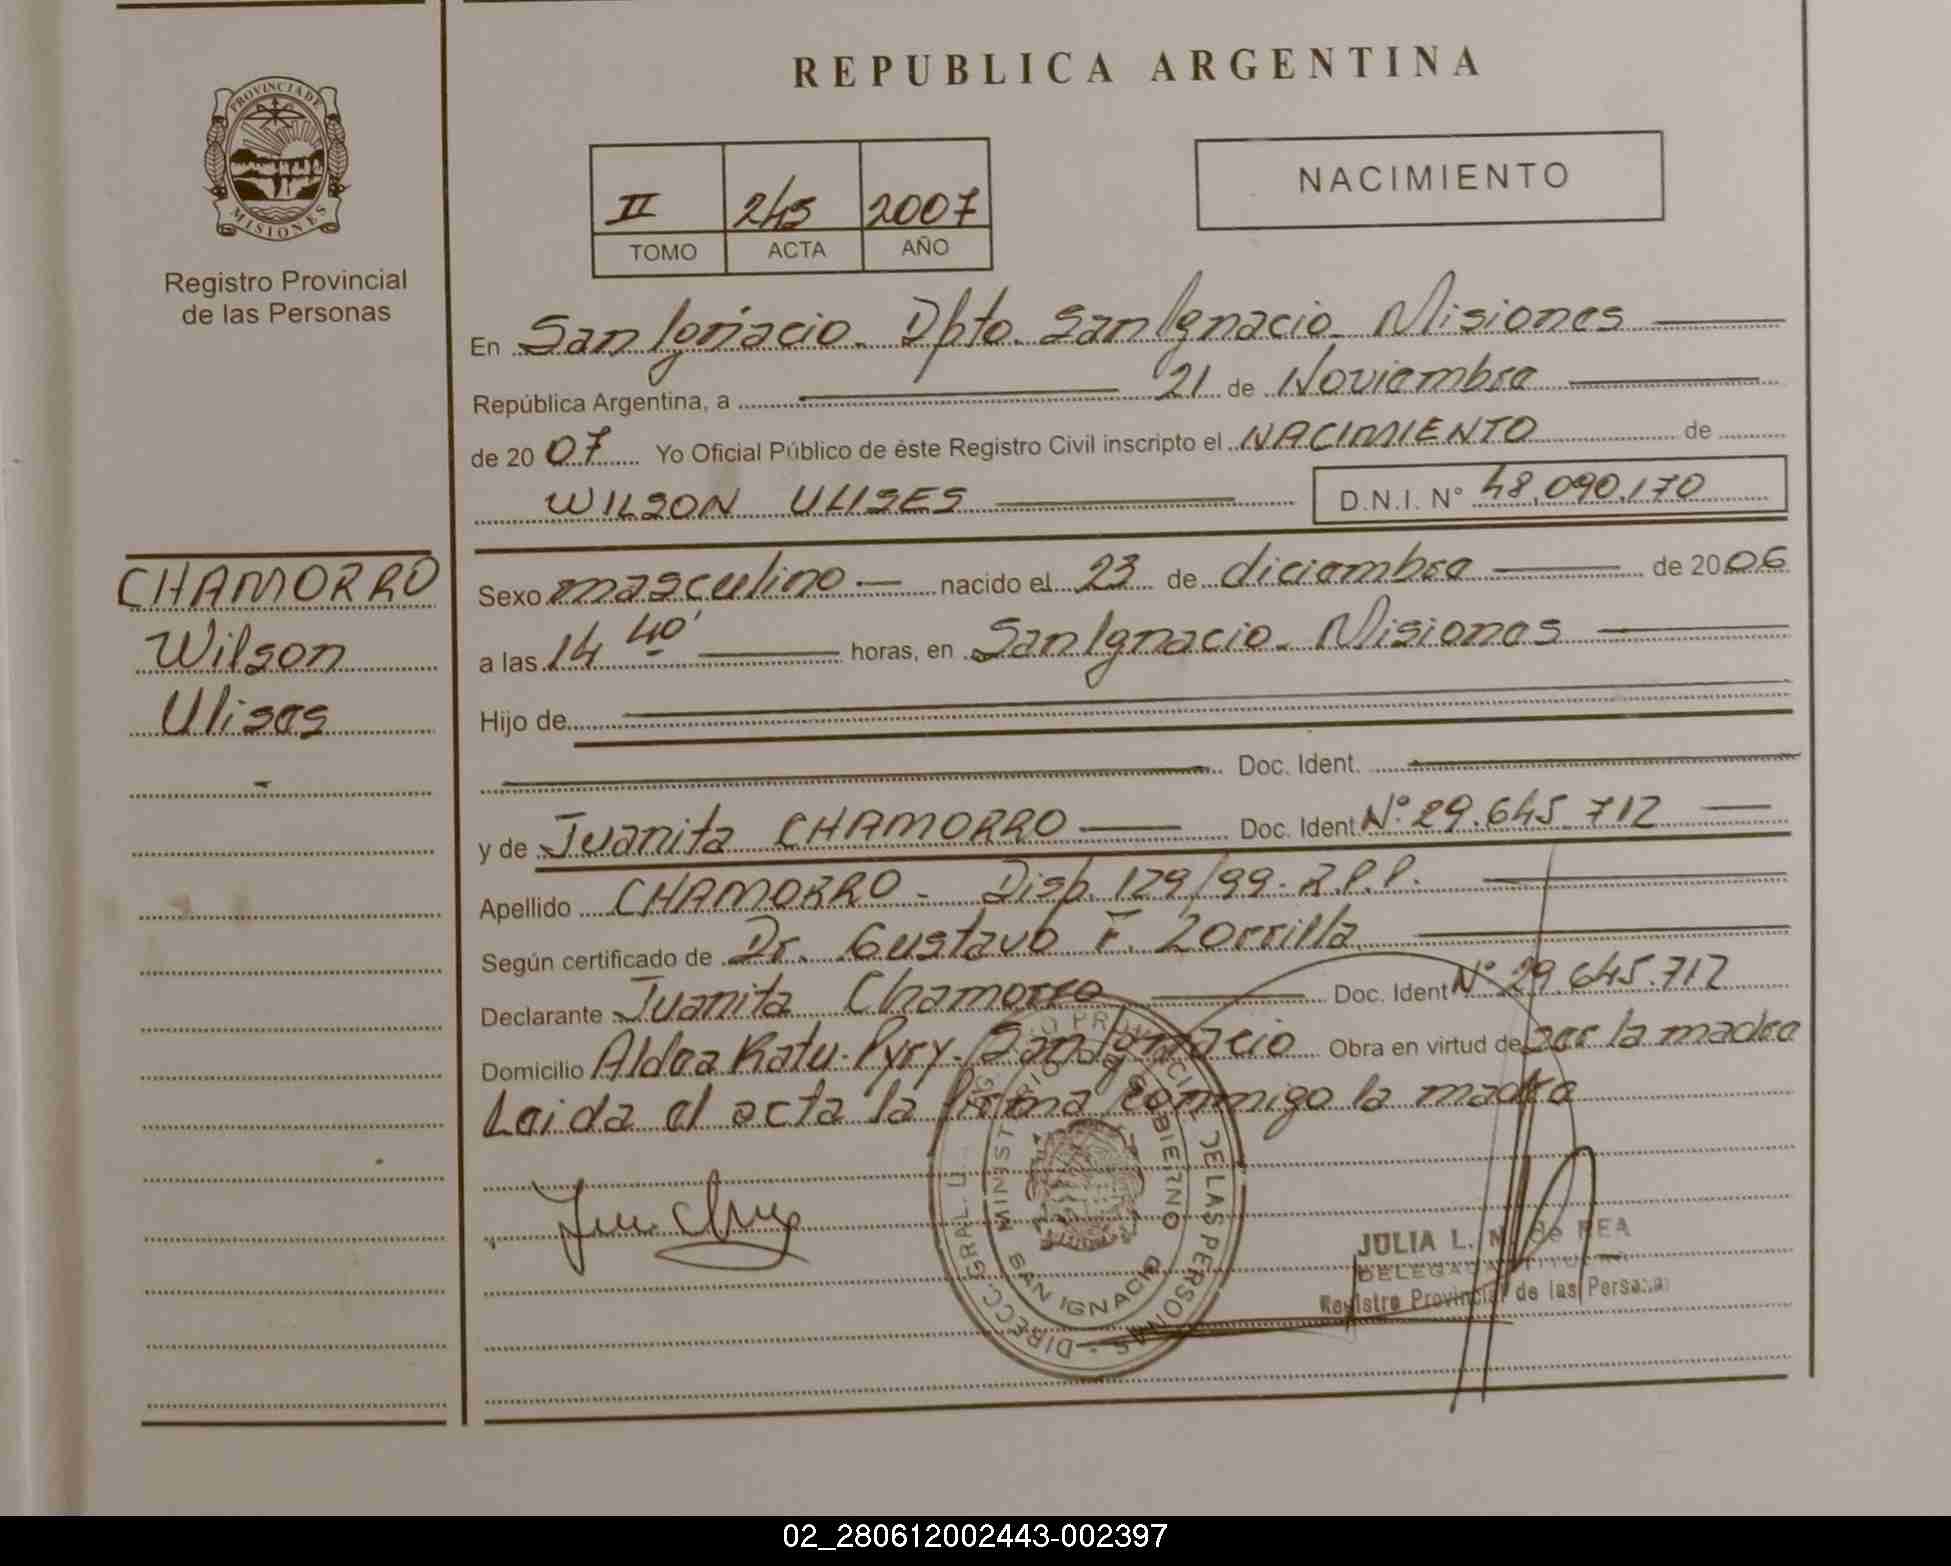 REPUBLICA ARGENTINA
PROVINCIA DE MISIONES
Registro Provincial
de las Personas
II 245 2007
TOMO ACTA AÑO
NACIMIENTO
En San Ignacio. Dpto. San Ignacio. Misiones
República Argentina, a 21 de Noviembre
de 2007 Yo Oficial Público de éste Registro Civil inscripto el NACIMIENTO de
WILSON ULISES D.N.I. N° 48.090.170
CHAMORRO
Wilson
Ulises
Sexo masculino nacido el 23 de diciembre de 2006
a las 14 40' horas, en San Ignacio. Misiones
Hijo de
Doc. Ident.
y de Juanita CHAMORRO Doc. Ident. N° 29.645.712
Apellido CHAMORRO - Disp. 129/99. R.P.P.
Según certificado de Dr. Gustavo F. Zorrilla
Declarante Juanita Chamorro Doc. Ident N° 29.645.712
Domicilio Aldea Katu-Pyry. San Ignacio Obra en virtud de ser la madre
Leida el acta la firma conmigo la madre
DIRECC. GRAL. REGISTRO PROVINCIAL DE LAS PERSONAS
MINISTERIO DE GOBIERNO
SAN IGNACIO
JULIA L. N. de REA
DELEGADA TITULAR
Registro Provincial de las Personas
02_280612002443-002397